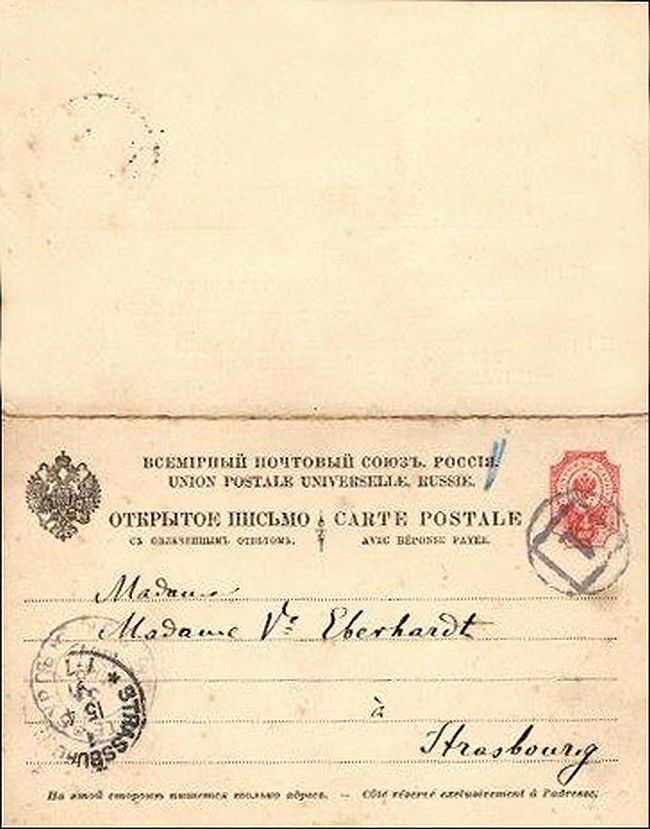 ВСЕМІРНЫЙ ПОЧТОВЫЙ СОЮЗЪ. РОССІЯ.
UNION POSTALE UNIVERSELLE. RUSSIE.
ОТКРЫТОЕ ПИСЬМО CARTE POSTALE
СЪ ОПЛАЧЕННЫМЪ ОТВѢТОМЪ. AVEC RÉPONSE PAYÉE.
Madame
Madame Vᵉ Eberhardt
à
Strasbourg
STRASSBURG
15
4
На этой сторонѣ пишется только адресъ. — Côté réservé exclusivement à l'adresse.